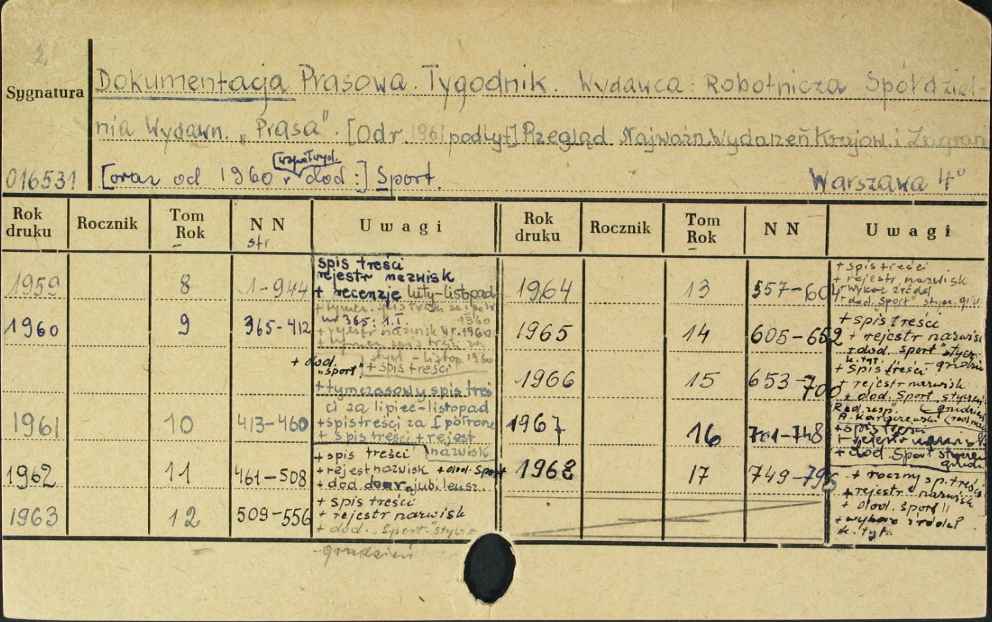 2
Sygnatura
016531
Dokumentacja Prasowa. Tygodnik. Wydawca: Robotnicza Spółdziel-
nia Wydawn. „Prasa". [Od r. 1961 podtyt.] Przegląd Najważn. Wydarzeń Krajow. i Zagran
[oraz od 1960 dod:] Sport.
Warszawa 4°
Rok druku Rocznik Tom Rok NN str Uwagi Rok druku Rocznik Tom Rok NN Uwagi
1959 8 1-944
spis treści
rejestr nazwisk
+ recenzję luty-listopad
1960 9 365-412
nr 365: 1.I. 1960
+ rejestr nazwisk
+ dod.
"sport", + spis treści
+ tymczasowy spis treś
ci za lipiec-listopad
1961 10 413-460
+ spis treści za I półrocze
+ spis treści + rejest
nazwisk
1962 11 461-508
+ spis treści
+ rejest nazwisk + dod. Sport
+ dod. jubileusz.
1963 12 509-556
+ spis treści
+ rejestr nazwisk
+ dod. Sport. stycz-
grudzień
1964 13 557-604
+ spis treści
+ rejestr nazwisk
+ wykaz źródeł
+ dod. Sport
1965 14 605-652
+ spis treści
+ rejestr nazwisk
+ dod. sport" stycz
grudzień
1966 15 653-700
k. tyt.
+ spis treści
+ rejestr nazwisk
+ dod. Sport stycz
grudzień
1967 16 701-748
Red. nacz.
+ spis treści
+ dod Sport styczeń
grudz
1968 17 749-796
+ roczny sp. treści
+ rejestr nazwisk
+ dod. sport"
k. tyt.